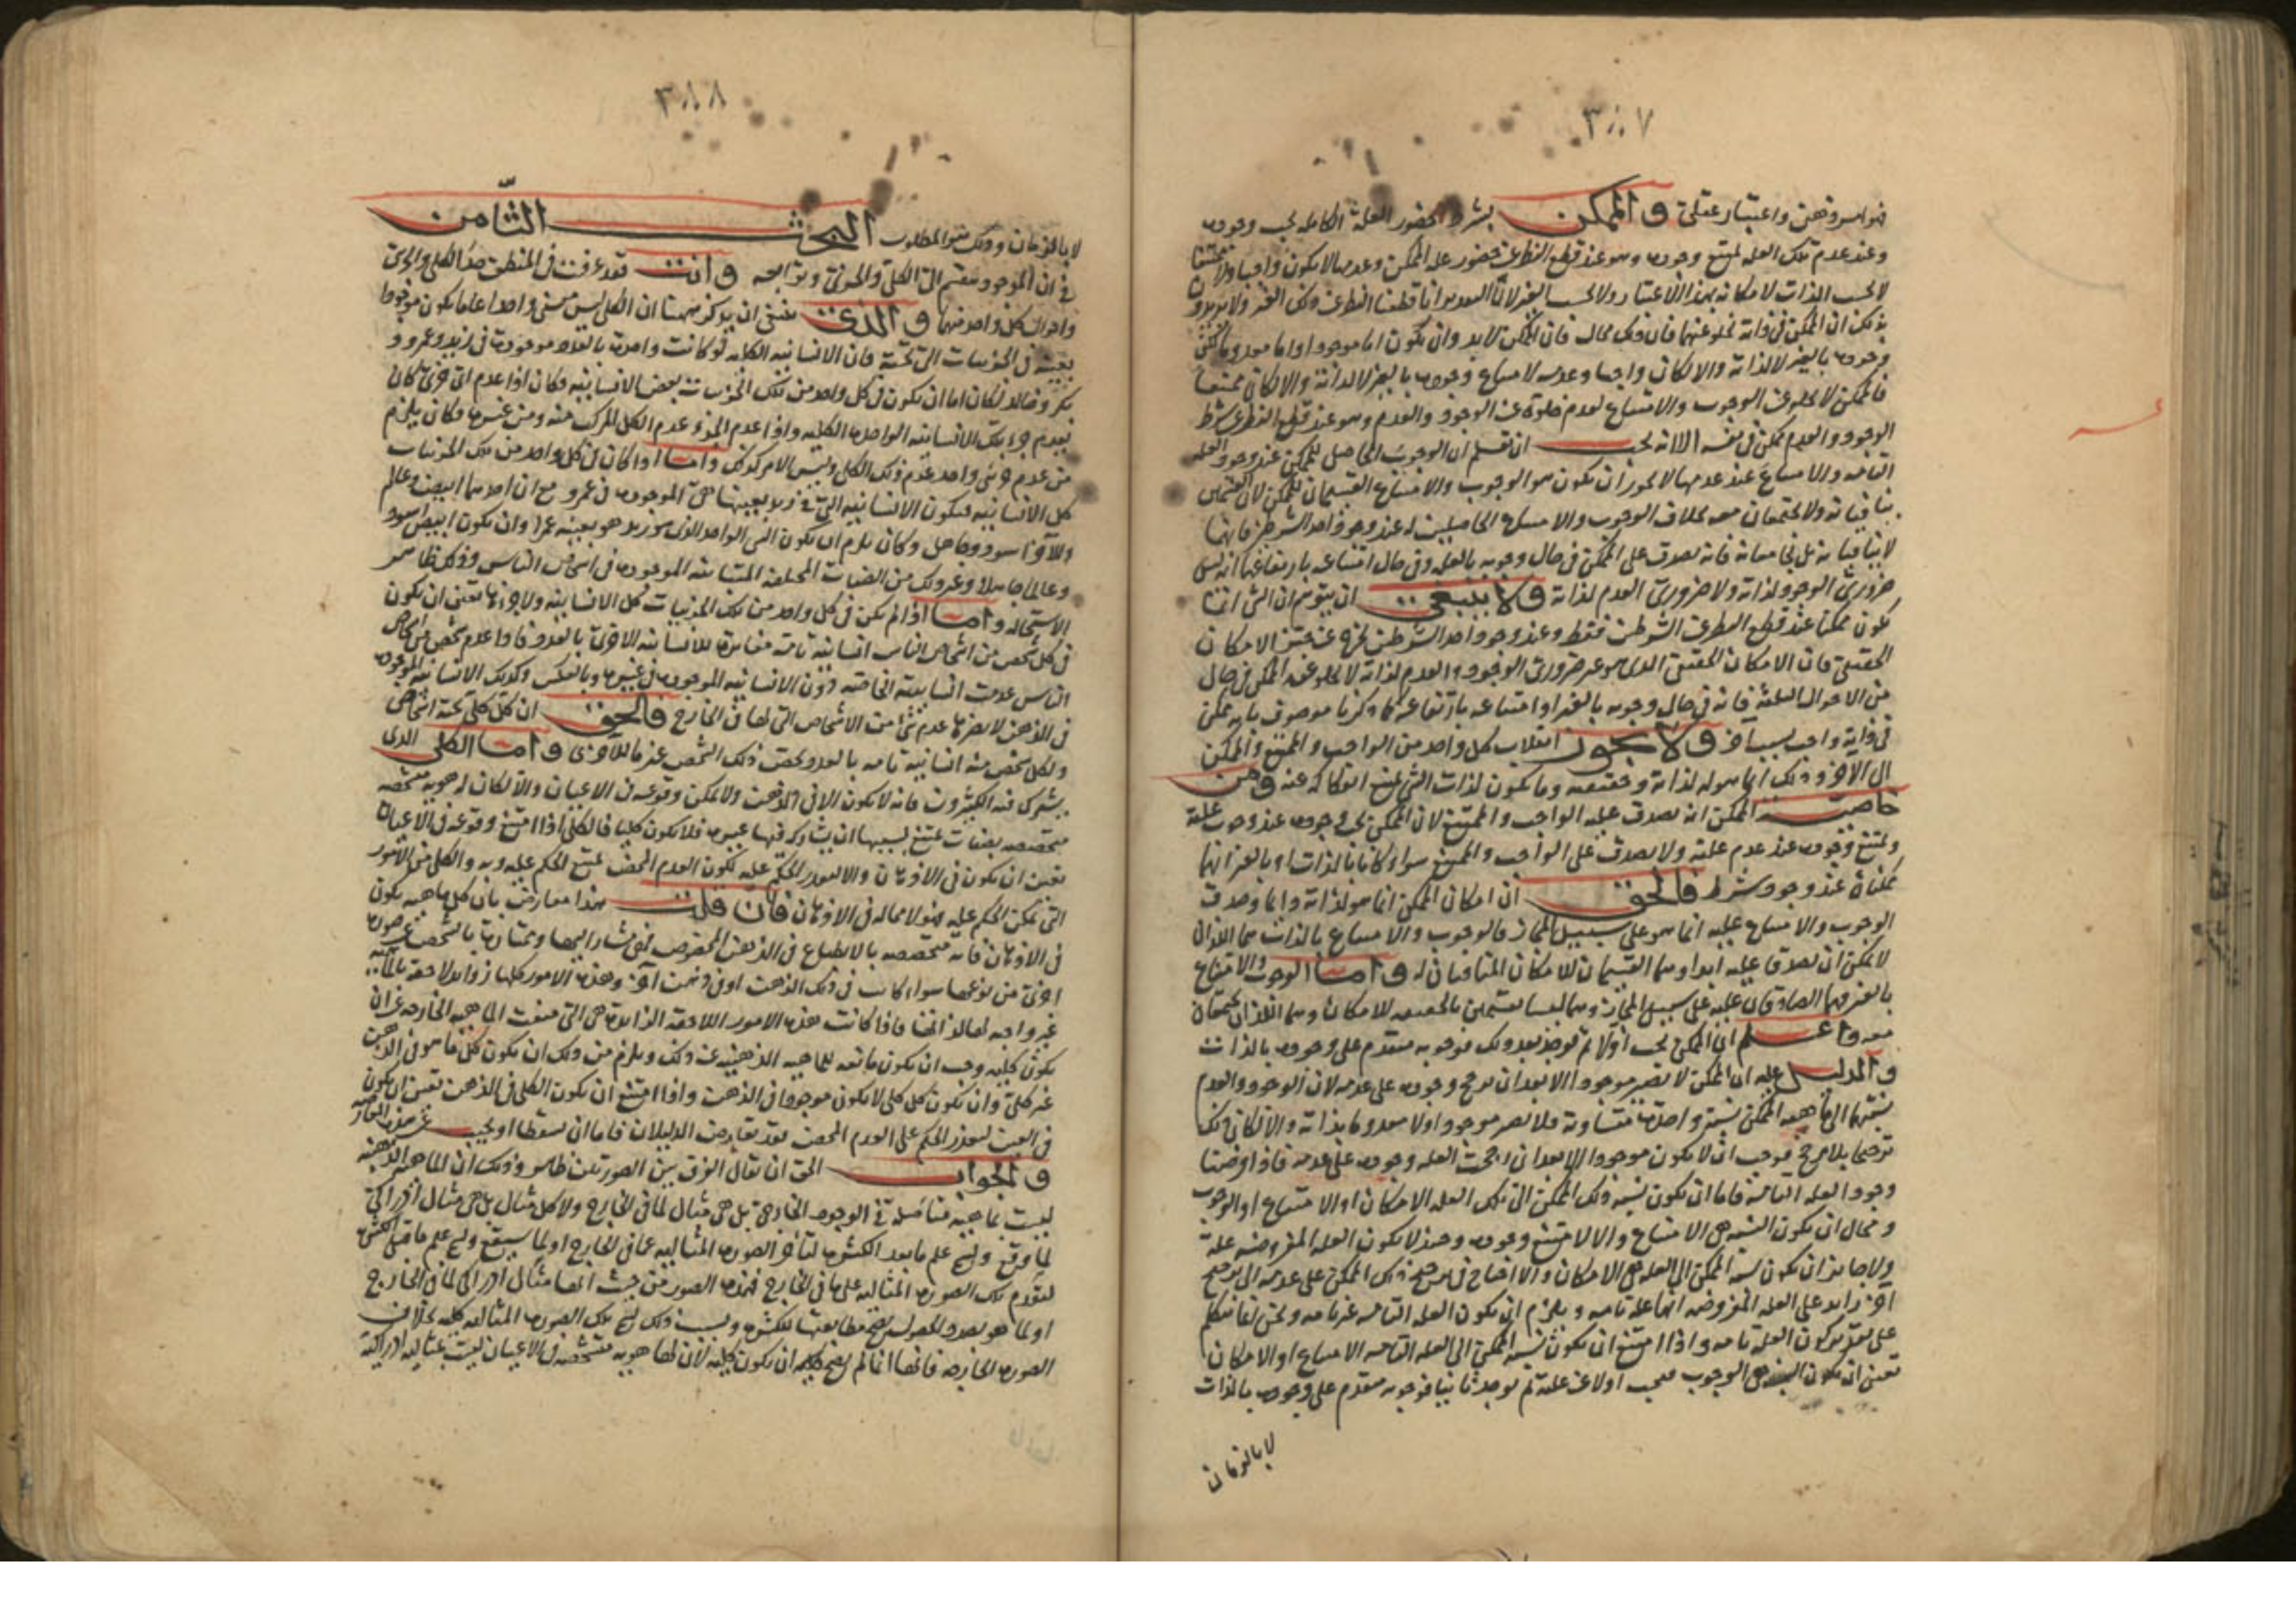 ٣٨٧
فهو امر ذهنى واعتبار عقلى والممكن بشرط حضور العلة الكاملة يجب وجوده
وعند عدم تلك العلة يمتنع وجوده وهو عند قطع النظر عن حضور علة الممكن وعدمها لا يكون واجبا ولا ممتنعا
بذلك ان الممكن فى ذاته يخلو عنهما فان ذلك محال فان الممكن لا بد وان يكون اما موجودا واما معدوما
وجوده بالغير لا لذاته والا لكان واجبا وعدمه لامتناع وجوده بالغير لا لذاته والا لكان ممتنعا
فالممكن لا يخلو عن الوجوب والامتناع لعدم خلوه عن الوجود والعدم وهو عند قطع النظر عن شرط
الوجود والعدم ممكن فى نفسه الا انه يجب ان تعلم ان الوجوب الحاصل للممكن عند وجود العلة
التامة والامتناع عند عدمها لا يجوز ان يكون هو الوجوب والامتناع القسيمان للممكن لان القسمين
ينافيانه ولا يجتمعان معه بخلاف الوجوب والامتناع الحاصلين له عند وجود احد الشرطين فانهما
لا ينافيانه بل يجامعانه فانه يصدق على الممكن فى حال وجوبه بالعلة وفى حال امتناعه بارتفاعها انه ليس
ضرورى الوجود لذاته ولا ضرورى العدم لذاته ولا ينبغى ان يتوهم ان الشئ انما
يكون ممكنا عند قطع النظر عن الشرطين فقط وعند وجود احد الشرطين يخرج عن حيز الامكان
الحقيقى فان الامكان الحقيقى الذى هو غير ضرورى الوجود والعدم لذاته لا يخلو عنه الممكن فى حال
من الاحوال البتة فانه فى حال وجوبه بالغير او امتناعه بارتفاعه كما ذكرنا موصوف بانه ممكن
فى ذاته واجب بسبب آخر ولا يجوز انقلاب كل واحد من الواجب والممتنع والممكن
الى الآخر وذلك انما هو له لذاته وحقيقته وما يكون لذات الشئ يمتنع انفكاكه عنه ومن
خاصية الممكن انه يصدق عليه الواجب والممتنع لان الممكن يجب وجوده عند وجوب علته
ويمتنع وجوده عند عدم علته ولا يصدق على الواجب والممتنع سواء كانا بالذات او بالغير انهما
ممكنان عند وجود شرط فالحق ان امكان الممكن انما هو لذاته وانما صدق
الوجوب والامتناع عليه انما هو على سبيل المجاز فالوجوب والامتناع بالذات هما اللذان
لا يمكن ان يصدقا عليه ابدا وهما القسيمان للامكان المنافيان له واما الوجوب والامتناع
بالغير فهما الصادقان عليه على سبيل المجاز وهما ليسا بقسيمين بالحقيقة للامكان وهما اللذان يجتمعان
معه واعلم ان الممكن يجب اولا ثم يوجد بعد ذلك فوجوبه متقدم على وجوده بالذات
والدليل عليه ان الممكن لا يصير موجودا الا بعد ان يرجح وجوده على عدمه لان الوجود والعدم
نسبتهما الى ماهية الممكن نسبة واحدة متساوية فلا يصير موجودا ولا معدوما بذاته والا لكان ذلك
ترجيحا بلا مرجح فوجب ان لا يكون موجودا الا بعد ان رجحت العلة وجوده على عدمه فاذا فرضنا
وجود العلة التامة فاما ان يكون نسبة ذلك الممكن الى تلك العلة الامكان او الامتناع او الوجوب
ومحال ان يكون النسبة هى الامتناع والا لامتنع وجوده وحينئذ لا يكون العلة المفروضة علة
ولا جائز ان يكون نسبة الممكن الى العلة هى الامكان والا احتاج فى ترجيح ذلك الممكن على عدمه الى مرجح
آخر زائد على العلة المفروضة انها علة تامة ويلزم ان يكون العلة التامة غير تامة ونحن انما نتكلم
على تقدير كون العلة تامة واذا امتنع ان يكون نسبة الممكن الى العلة التامة الامتناع او الامكان
تعين ان يكون النسبة هى الوجوب فيجب اولا عن علته ثم يوجد ثانيا فوجوبه متقدم على وجوده بالذات
لا بالزمان
٣٨٨
لا بالزمان وذلك هو المطلوب البحث الثامن
فى ان الموجود ينقسم الى الكلى والجزئى وتوابعه وانت فقد عرفت فى المنطق حد الكلى والجزئى
واحوال كل واحد منهما والذى ينبغى ان يذكر ههنا ان الكلى ليس معنى واحدا عاما يكون موجودا
بعينه فى الجزئيات التى تحته فان الانسانية الكلية لو كانت واحدة بالعدد موجودة فى زيد وعمرو و
بكر وخالد لكان اما ان يكون فى كل واحد من تلك الجزئيات بعض الانسانية وكان اذا عدم اى جزئى كان
يعدم جزء تلك الانسانية الواحدة الكلية واذا عدم الجزء عدم الكل المركب منه ومن غيره وكان يلزم
من عدم جزئى واحد عدم ذلك الكلى وليس الامر كذلك واما اذا كان فى كل واحد من تلك الجزئيات
كل الانسانية فتكون الانسانية التى فى زيد بعينها هى الموجودة فى عمرو مع ان احدهما ابيض وعالم
والآخر اسود وجاهل وكان يلزم ان يكون الشئ الواحد الذى هو زيد هو بعينه عمرا وان يكون ابيض اسود
وعالما جاهلا وغير ذلك من الصفات المختلفة المتباينة الموجودة فى اشخاص الناس وذلك ظاهر
الاستحالة واما اذا لم يكن فى كل واحد من تلك الجزئيات كل الانسانية ولا جزءها تعين ان يكون
فى كل شخص من اشخاص الناس انسانية تامة مغايرة للانسانية الاخرى بالعدد فاذا عدم شخص من اشخاص
الناس عدمت انسانيته الخاصة دون الانسانية الموجودة فى غيره وبالعكس وكذلك الانسانية الموجودة
فى الذهن لا يضرها عدم شئ من الاشخاص التى لها فى الخارج فالحق ان كل كلى تحته اشخاص
ولكل شخص منه انسانية تامة بالعدد يخص ذلك الشخص غير ما للآخرى واما الكلى الذى
يشترك فيه الكثيرون فانه لا يكون الا فى الذهن ولا يمكن وقوعه فى الاعيان والا لكان له هوية متشخصة
متخصصة بصفات يمتنع بسببها ان يشاركه فيها غيره فلا يكون كليا فالكلى اذا امتنع وقوعه فى الاعيان
تعين ان يكون فى الاذهان والا لتعذر الحكم عليه لكون العدم المحض يمتنع الحكم عليه وبه والكلى من الامور
التى يمكن الحكم عليه فهو لا محالة فى الاذهان فان قلت هذا معارض بان كل ماهية يكون
فى الاذهان فانه متخصصة بالانطباع فى الذهن المخصوص فهى مشار اليها وممتازة بالتشخص عن صورة
اخرى من نوعها سواء كانت فى ذلك الذهن او فى ذهن آخر وهذه الامور كلها زوائد لاحقة بالماهية
غير واجبة لها لذاتها فاذا كانت هذه الامور اللاحقة الزائدة هى التى منعت الماهية الخارجية عن ان
يكون كلية وجب ان يكون مانعة للماهية الذهنية عن ذلك ويلزم من ذلك ان يكون كل ما هو فى الذهن
غير كلى وان يكون كل كلى لا يكون موجودا فى الذهن واذا امتنع ان يكون الكلى فى الذهن تعين ان يكون
فى العين لتعذر الحكم على العدم المحض فقد تعارض الدليلان فاما ان يسقطا او يجيب عن هذه المعارضة
والجواب الحق ان يقال الفرق بين الصورتين ظاهر وذلك ان الماهية الذهنية
ليست بماهية متاصلة فى الوجود الخارجى بل هى مثال لما فى الخارج ولا كل مثال بل هى مثال ادراكى
لما وقع ويسمى علم ما بعد الكثرة لتأخر الصورة المثالية عما فى الخارج او لما سيقع ويسمى علم ما قبل الكثرة
لتقدم تلك الصورة المثالية على ما فى الخارج فهذه الصور من حيث انها مثال ادراكى لما فى الخارج
او لما هو بصدد الحصول يصح مطابقتها للكثرة وبسبب ذلك يسمى تلك الصورة المثالية كلية بخلاف
الصورة الخارجة فانها انما لم يصح ان يكون كلية لان لها هوية متشخصة فى الاعيان ليست بمثالية ادراكية